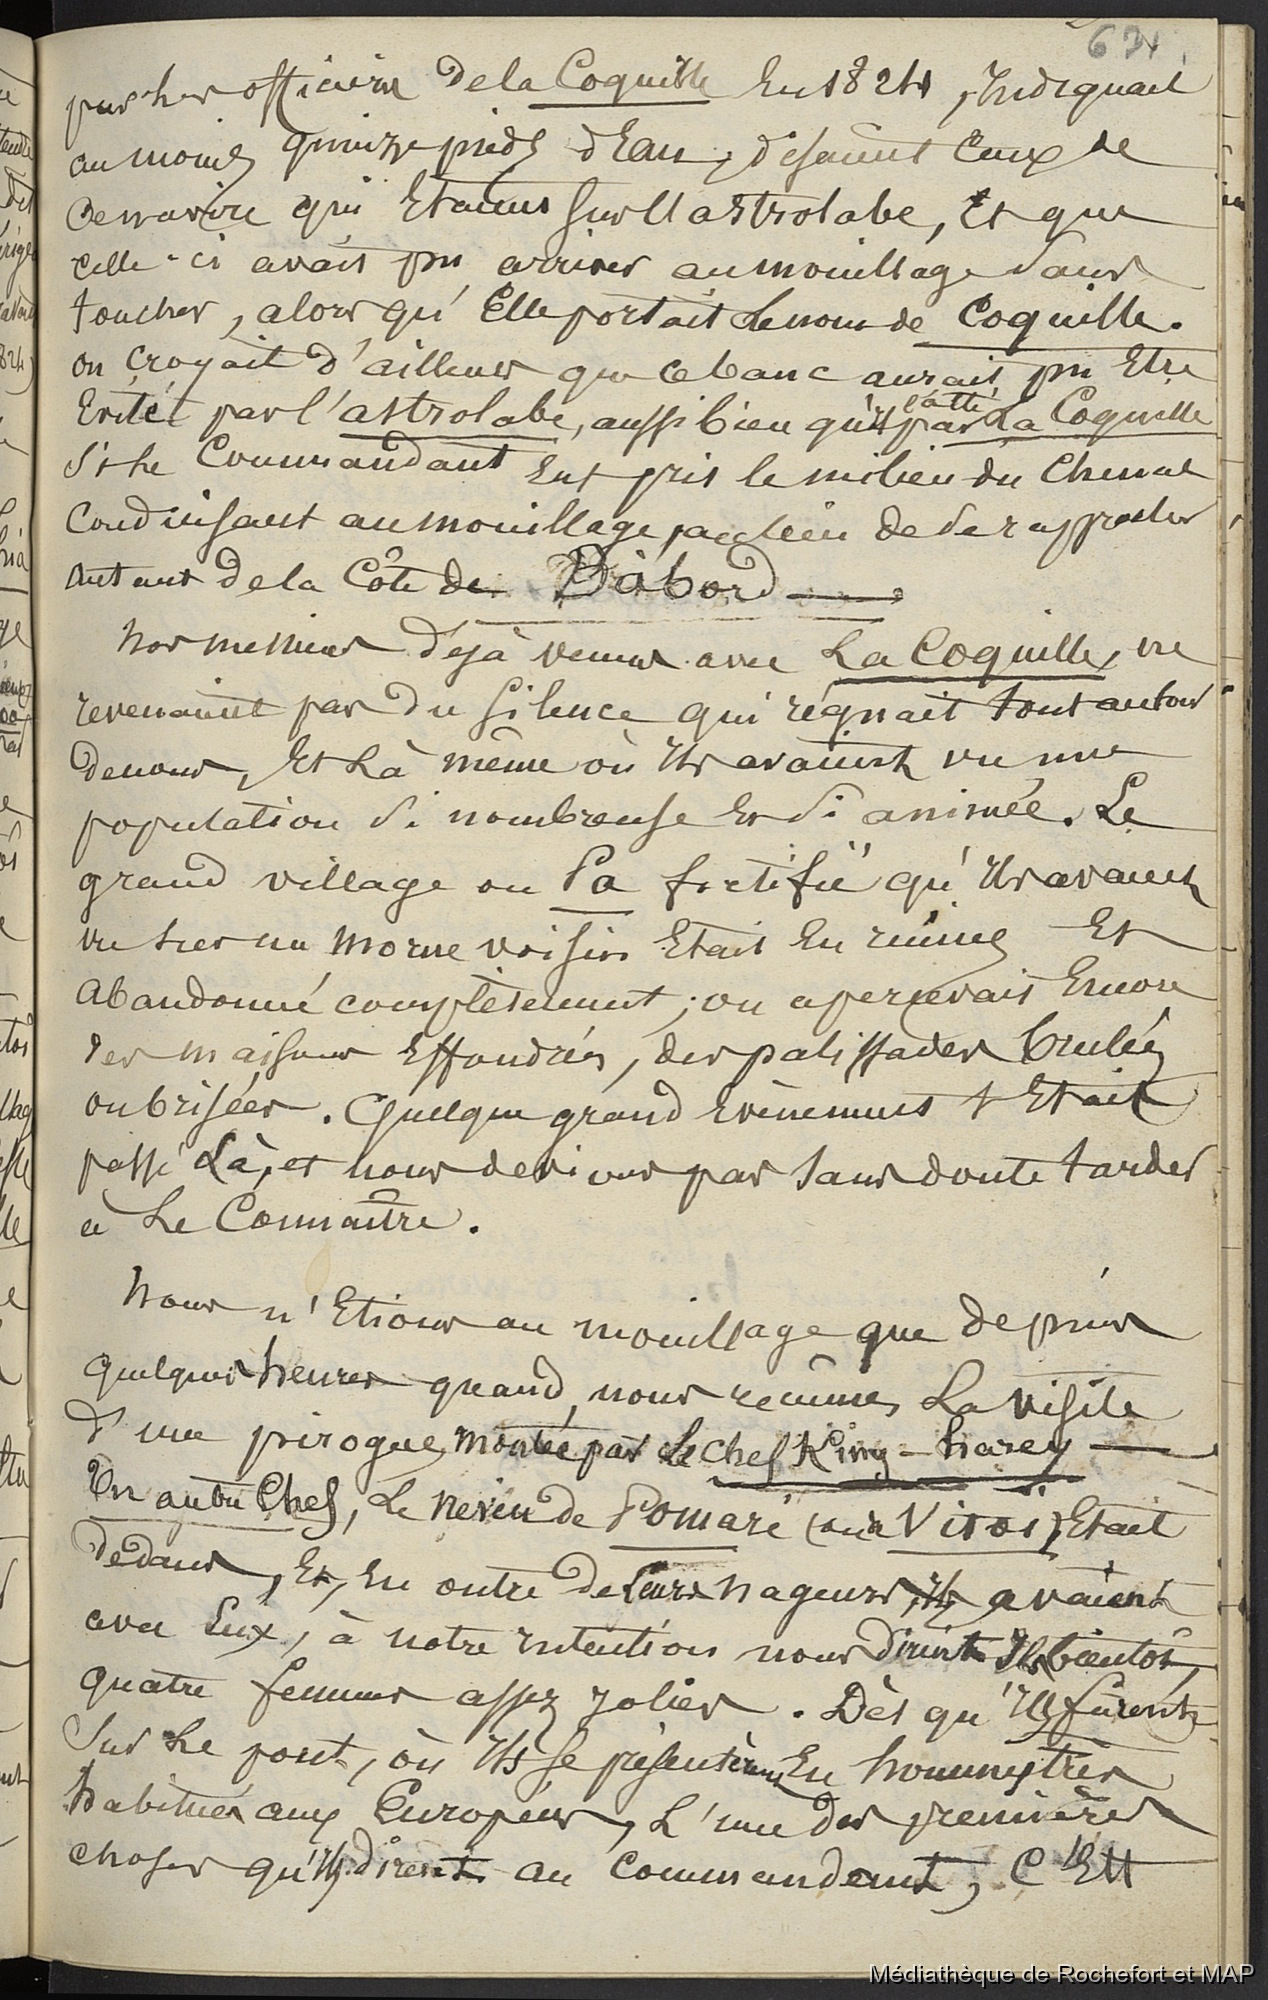 631
par les officiers de la Coquille En 1824, Indiquait
au moins quinze pieds d'Eau, disaient Ceux de
ce navire qui Etaient sur l'Astrolabe, Et que
celle-ci avait pu arriver au mouillage sans
toucher, alors qu'Elle portait le nom de Coquille.
on croyait d'ailleurs que ce banc aurait pu Etre
Evité par l'astrolabe, aussi bien qu'il l'a été par La Coquille
si le Commandant Eut pris le milieu du Chenal
Conduisant au mouillage, au lieu de se rapprocher
autant de la Côte de Bâbord —
Nos messieurs déjà venus avec La Coquille, ne
revenaient pas du silence qui régnait tout autour
de nous, Et Là même où Ils avaient vu une
population si nombreuse Et si animée. Le
grand village ou Pa fortifié qu'Ils avaient
vu sur un Morne voisin Etait En ruines Et
Abandonné complètement ; on apercevait Encore
des maisons Effondrées, des palissades brulées
ou brisées. Quelque grand Evènement s'Etait
passé Là, et nous devions pas sans doute tarder
à Le Connaître.
Nous n'Etions au mouillage que depuis
quelques heures quand nous reçûmes La visite
d'une pirogue, montée par le chef King-harey —
Un autre Chef, Le Neveu de Pomaré (ou Vitoi) Etait
dedans, Et, En outre de leurs nageurs, Ils avaient
avec Eux, à notre intention nous dirent Ils bientôt,
quatre femmes assez jolies. Dès qu'Ils furent
Sur Le pont, où Ils se présentèrent En hommes très
habitués aux Européens, L'une des premières
choses qu'Ils dirent au Commandant, C'Est
Médiathèque de Rochefort et MAP